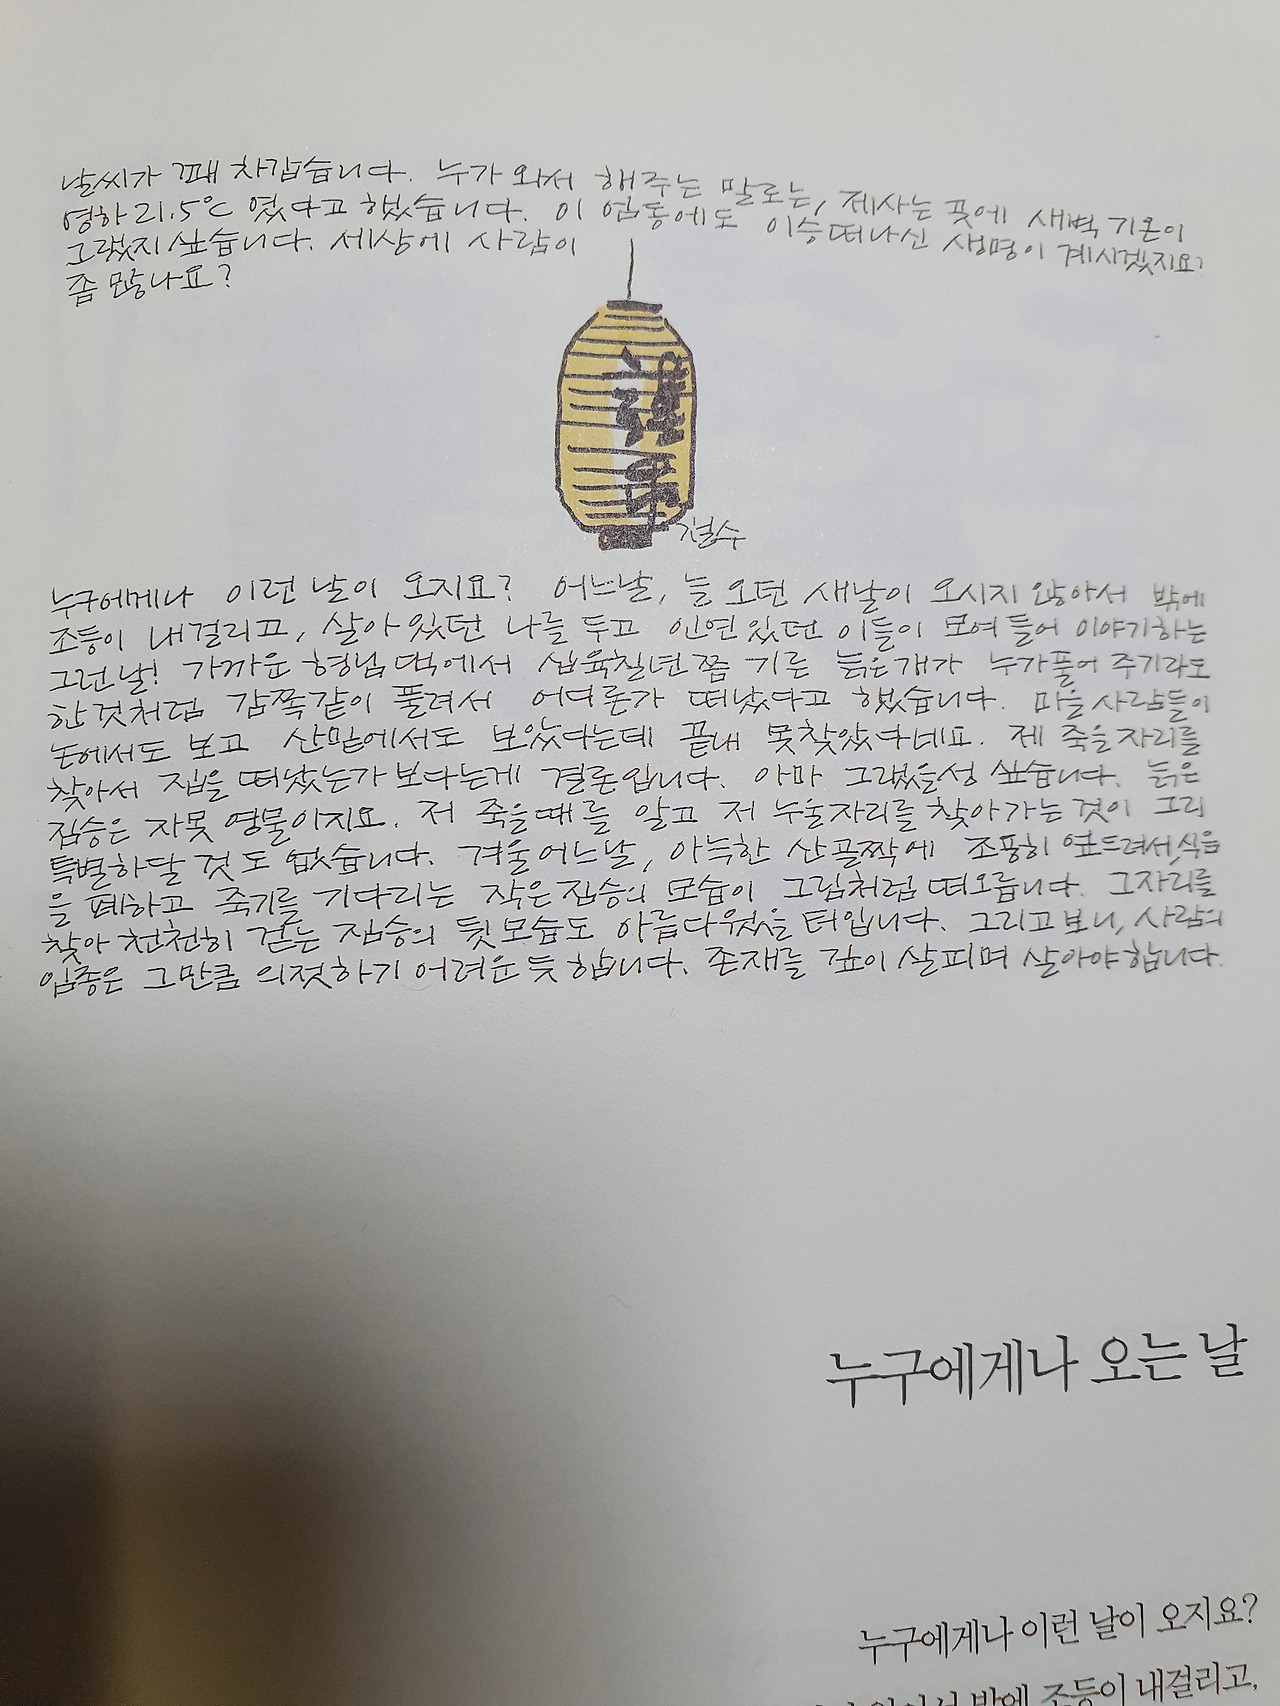 날씨가 꽤 차갑습니다. 누가 와서 해주는 말로는, 제사는 곳에 새벽 기온이
영하 21.5℃ 였다고 했습니다. 이 엄동에도 이승떠나신 생명이 계시겠지요?
그랬지싶습니다. 세상에 사람이
좀 많나요?
謹
弔
철수
누구에게나 이런 날이 오지요? 어느날, 늘 오던 새날이 오시지 않아서 밖에
조등이 내걸리고, 살아있던 나를 두고 인연있던 이들이 모여들어 이야기하는
그런날! 가까운 형님댁에서 십육칠년쯤 기른 늙은개가 누가풀어 주기라도
한것처럼 감쪽같이 풀려서 어디론가 떠났다고 했습니다. 마을 사람들이
논에서도 보고 산밑에서도 보았다는데 끝내 못찾았다네요. 제 죽을자리를
찾아서 집을 떠났는가보다는게 결론입니다. 아마 그랬을성 싶습니다. 늙은
짐승은 자못 영물이지요. 저 죽을때를 알고 저 누울자리를 찾아가는 것이 그리
특별하달 것도 없습니다. 겨울어느날, 아늑한 산골짝에 조용히 엎드려서, 식음
을 폐하고 죽기를 기다리는 작은짐승의 모습이 그림처럼 떠오릅니다. 그자리를
찾아 천천히 걷는 짐승의 뒷모습도 아름다웠을 터입니다. 그리고보니, 사람의
임종은 그만큼 의젓하기 어려운듯 합니다. 존재를 깊이 살피며 살아야합니다.
누구에게나 오는 날
누구에게나 이런 날이 오지요?
밖에 조등이 내걸리고,